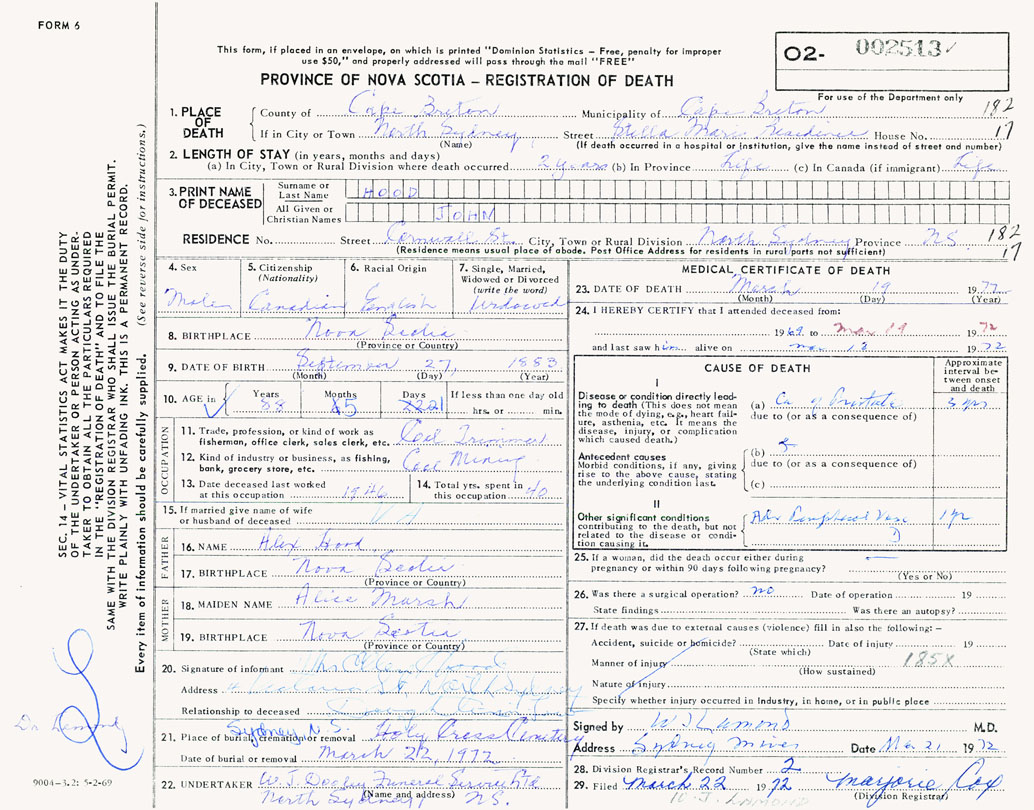 FORM 6
This form, if placed in an envelope, on which is printed "Dominion Statistics – Free, penalty for improper
use $50," and properly addressed will pass through the mail "FREE"
PROVINCE OF NOVA SCOTIA – REGISTRATION OF DEATH
02- 002513
For use of the Department only
1. PLACE OF DEATH
County of Cape Breton Municipality of Cape Breton 182
If in City or Town North Sydney Street Stella Maris Residence House No. 17
(Name) (If death occurred in a hospital or institution, give the name instead of street and number)
2. LENGTH OF STAY (in years, months and days)
(a) In City, Town or Rural Division where death occurred 2 years (b) In Province Life (c) In Canada (if immigrant) Life
3. PRINT NAME OF DECEASED
Surname or Last Name HOOD
All Given or Christian Names JOHN
RESIDENCE No. Street Cornwall St. City, Town or Rural Division North Sydney Province NS 182
(Residence means usual place of abode. Post Office Address for residents in rural parts not sufficient) 17
4. Sex
Male
5. Citizenship
(Nationality)
Canadian
6. Racial Origin
English
7. Single, Married,
Widowed or Divorced
(write the word)
Widowed
8. BIRTHPLACE Nova Scotia
(Province or Country)
9. DATE OF BIRTH September 27, 1883
(Month) (Day) (Year)
10. AGE in Years Months Days If less than one day old
88 hrs. or min.
OCCUPATION
11. Trade, profession, or kind of work as
fisherman, office clerk, sales clerk, etc. Coal Trimmer
12. Kind of industry or business, as fishing,
bank, grocery store, etc. Coal Mining
13. Date deceased last worked
at this occupation 1946
14. Total yrs. spent in
this occupation 40
15. If married give name of wife
or husband of deceased
FATHER
16. NAME Alex Hood
17. BIRTHPLACE Nova Scotia
(Province or Country)
MOTHER
18. MAIDEN NAME Alice Marsh
19. BIRTHPLACE Nova Scotia
(Province or Country)
20. Signature of informant
Address St. North Sydney
Relationship to deceased
21. Place of burial, cremation or removal Sydney N.S. Holy Cross Cemetery
Date of burial or removal March 22, 1972
22. UNDERTAKER W. J. Funeral Service Ltd
(Name and address)
North Sydney, N.S.
MEDICAL CERTIFICATE OF DEATH
23. DATE OF DEATH March 19 1972
(Month) (Day) (Year)
24. I HEREBY CERTIFY that I attended deceased from:
1969 to Mar 19 1972
and last saw him alive on Mar 18 1972
CAUSE OF DEATH
Approximate
interval be-
tween onset
and death
I
Disease or condition directly lead-
ing to death (This does not mean
the mode of dying, e.g., heart fail-
ure, asthenia, etc. It means the
disease, injury, or complication
which caused death.)
(a) Ca of Prostate 3 yrs
due to (or as a consequence of)
Antecedent causes
Morbid conditions, if any, giving
rise to the above cause, stating
the underlying condition last.
(b)
due to (or as a consequence of)
(c)
II
Other significant conditions
contributing to the death, but not
related to the disease or condi-
tion causing it.
Peripheral Vasc 1 yr
25. If a woman, did the death occur either during
pregnancy or within 90 days following pregnancy?
(Yes or No)
26. Was there a surgical operation? no Date of operation 19
State findings Was there an autopsy?
27. If death was due to external causes (violence) fill in also the following: –
Accident, suicide or homicide? Date of injury 19
(State which)
Manner of injury 185X
(How sustained)
Nature of injury
Specify whether injury occurred in Industry, in home, or in public place
Signed by W. J. Lamond M.D.
Address Sydney Mines Date Mar 21 1972
28. Division Registrar's Record Number 2
29. Filed March 22 1972 Marjorie Cox
(Division Registrar)
W. J. Lamond
SEC. 14 – VITAL STATISTICS ACT MAKES IT THE DUTY
OF THE UNDERTAKER OR PERSON ACTING AS UNDER-
TAKER TO OBTAIN ALL THE PARTICULARS REQUIRED
IN THE "REGISTRATION OF DEATH" AND TO FILE THE
SAME WITH THE DIVISION REGISTRAR WHO SHALL ISSUE THE BURIAL PERMIT.
WRITE PLAINLY WITH UNFADING INK. THIS IS A PERMANENT RECORD.
Every item of information should be carefully supplied. (See reverse side for instructions.)
Dr. Lamond
9004-3.2: 5-2-69